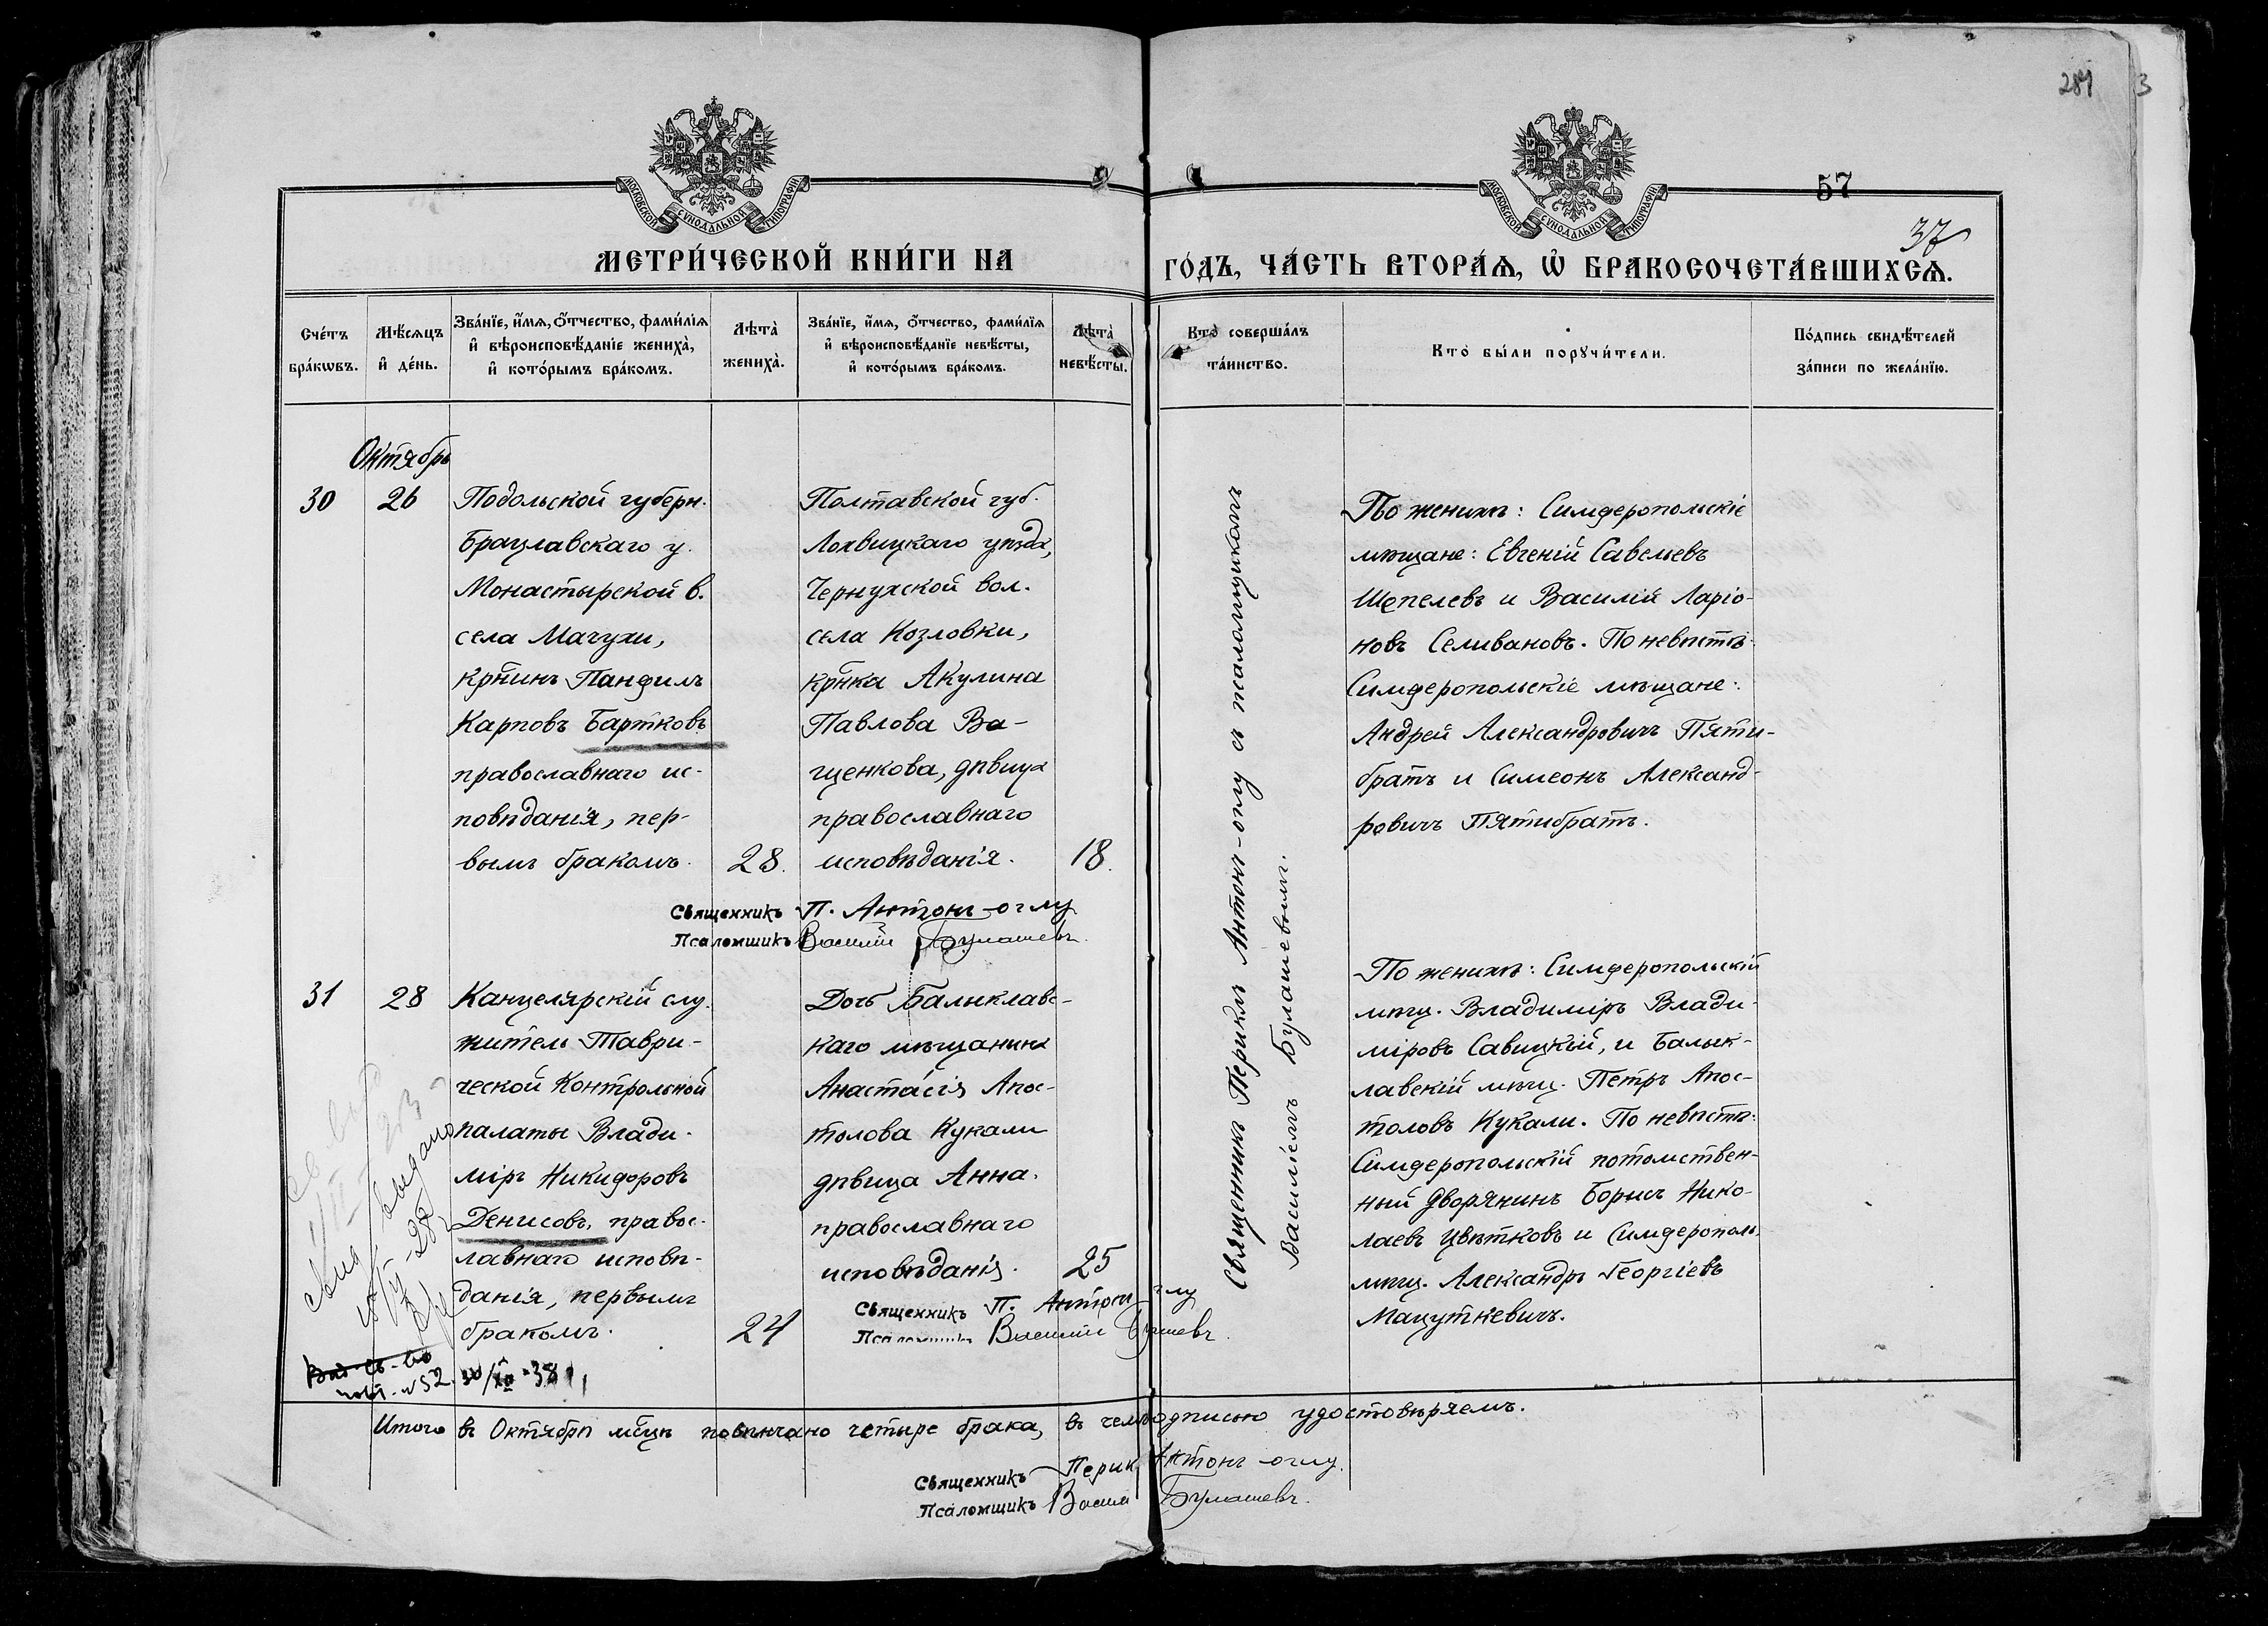 287 3
57
37
МОСКОВСКОЙ СУНОДАЛЬНОЙ ТИПОГРАФІИ
МОСКОВСКОЙ СУНОДАЛЬНОЙ ТИПОГРАФІИ
МЕТРИ́ЧЕСКОЙ КНИ́ГИ НА
ГО́ДЪ, ЧА́СТЬ ВТОРА́Я, Ѡ БРАКОСОЧЕТА́ВШИХСЯ.
Сче́тъ
бра́кѡвъ.
Мѣ́сяцъ
и де́нь.
Зва́нїе, и́мя, о́тчество, фами́лїя
и вѣроисповѣ́данїе жениха̀,
и кото́рымъ бра́комъ.
Лѣта̀
жениха̀.
Зва́нїе, и́мя, о́тчество, фами́лїя
и вѣроисповѣ́данїе невѣ́сты,
и кото́рымъ бра́комъ.
Лѣта̀
невѣ́сты.
Кто̀ соверша́лъ
та́инство.
Кто̀ бы́ли порꙋчи́тели.
По́дпись свидѣ́телей
за́писи по жела́нїю.
Октябрь
30
26
Подольской губерн.
Брацлавскаго у.
Монастырской в.
села Мачухи,
крнинъ Панфилъ
Карповъ Бартковъ
православнаго ис-
повѣданія, пер-
вымъ бракомъ.
28.
Полтавской губ.
Лохвицкаго уѣзда,
Чернухской вол.
села Козловки,
крнка Акулина
Павлова Ва-
щенкова, дѣвица
православнаго
исповѣданія.
18.
Священникъ П. Антонъ-оглу
Псаломщикъ Василій Булашевъ.
Священникъ Periклъ Антонъ-оглу съ псаломщикомъ
Василіемъ Булашевымъ.
По женихѣ: Симферопольскіе
мѣщане: Евгеній Савельевъ
Шепелевъ и Василій Ларіо-
новъ Селивановъ. По невѣстѣ:
Симферопольскіе мѣщане:
Андрей Александровичъ Пяти-
братъ и Симеонъ Александ-
ровичъ Пятибратъ.
31
28
Канцелярскій слу-
житель Таври-
ческой Контрольной
палаты Влади-
міръ Никифоровъ
Денисовъ, правос-
лавнаго исповѣ-
данія, первымъ
бракомъ.
24
Дочь Балаклавс-
каго мѣщанина
Анастасія Апос-
толова Кукали
дѣвица Анна.
православнаго
исповѣданія.
25
Священникъ П. Антонъ оглу
Псаломщикъ Василій Булашевъ.
По женихѣ: Симферопольскій
мѣщ. Владиміръ Влади-
міровъ Савицкій, и Балак-
лавскій мѣщ. Петръ Апос-
толовъ Кукали. По невѣстѣ:
Симферопольскій потомствен-
ный дворянинъ Борисъ Нико-
лаевъ Цвѣтковъ и Симферополь.
мѣщ. Александръ Георгіевъ
Мацуткевичъ.
выдано
№ 52.
Итого въ Октябрѣ мсцѣ повѣнчано четыре брака, въ чемъ подписью удостовѣряемъ.
Священникъ Периклъ Антонъ-оглу.
Псаломщикъ Василій Булашевъ.